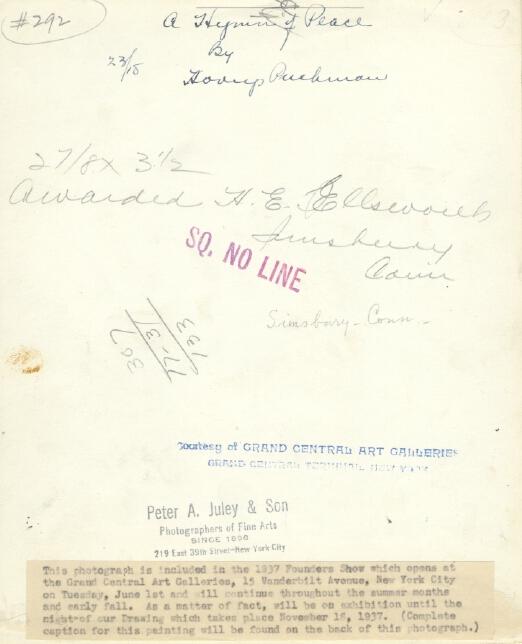 #292
A Hymn of Peace
By
23/18
Hovsep Pushman
2 7/8 x 3 1/2
Awarded H. E. Ellsworth
Simsbury
Conn
SQ. NO LINE
Simsbury - Conn.
133
17-31
367
Courtesy of GRAND CENTRAL ART GALLERIES
GRAND CENTRAL TERMINAL NEW YORK
Peter A. Juley & Son
Photographers of Fine Arts
SINCE 1896
219 East 39th Street-New York City
This photograph is included in the 1937 Founders Show which opens at
the Grand Central Art Galleries, 15 Vanderbilt Avenue, New York City
on Tuesday, June 1st and will continue throughout the summer months
and early fall. As a matter of fact, will be on exhibition until the
night of our Drawing which takes place November 16, 1937. (Complete
caption for this painting will be found on the back of this photograph.)